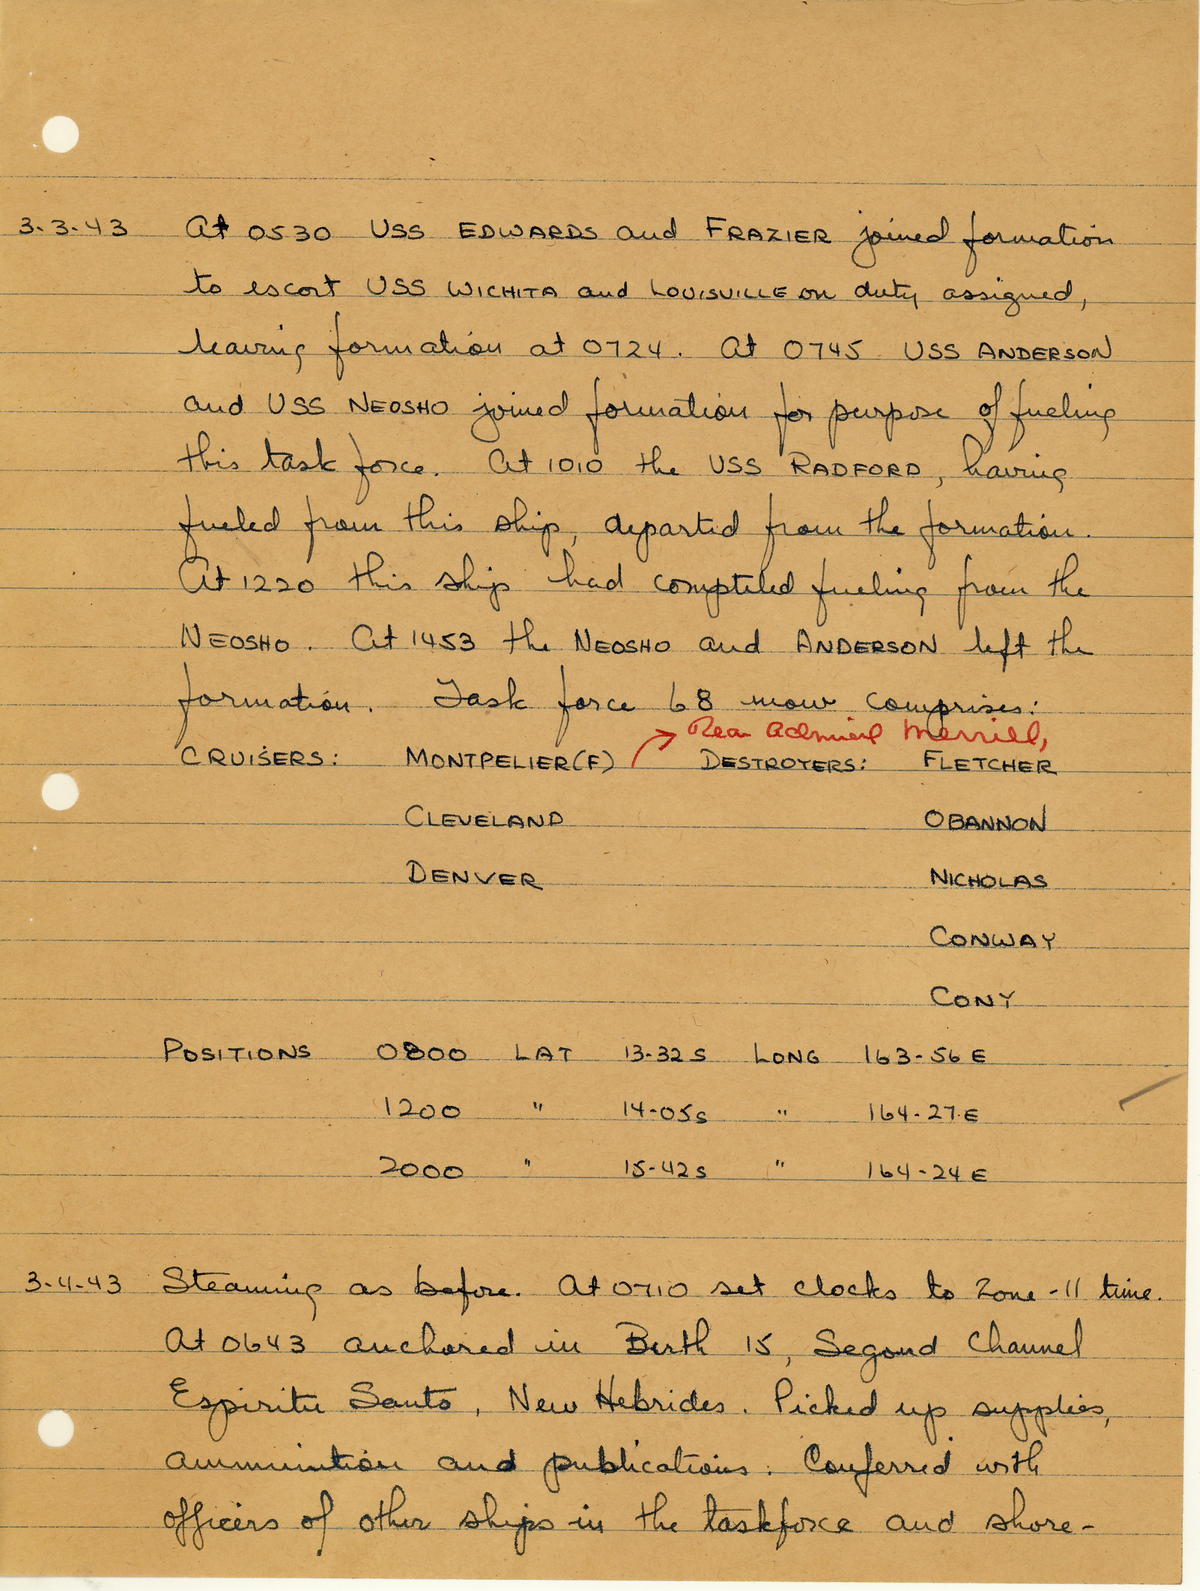 3-3-43 At 0530 USS EDWARDS and FRAZIER joined formation
to escort USS WICHITA and LOUISVILLE on duty assigned,
leaving formation at 0724. At 0745 USS ANDERSON
and USS NEOSHO joined formation for purpose of fueling
this task force. At 1010 the USS RADFORD, having
fueled from this ship, departed from the formation.
At 1220 this ship had compteled fueling from the
NEOSHO. At 1453 the NEOSHO and ANDERSON left the
formation. Task force 68 now comprises:
Rear Admiral Merrill,
CRUISERS: MONTPELIER(F) DESTROYERS: FLETCHER
CLEVELAND OBANNON
DENVER NICHOLAS
CONWAY
CONY
POSITIONS 0800 LAT 13-32 S LONG 163-56 E
1200 " 14-05 S " 164-27 E
2000 " 15-42 S " 164-24 E
3-4-43 Steaming as before. At 0710 set clocks to Zone -11 time.
At 0643 anchored in Berth 15, Segond Channel
Espiritu Santo, New Hebrides. Picked up supplies,
ammunition and publications. Conferred with
officers of other ships in the taskforce and shore-